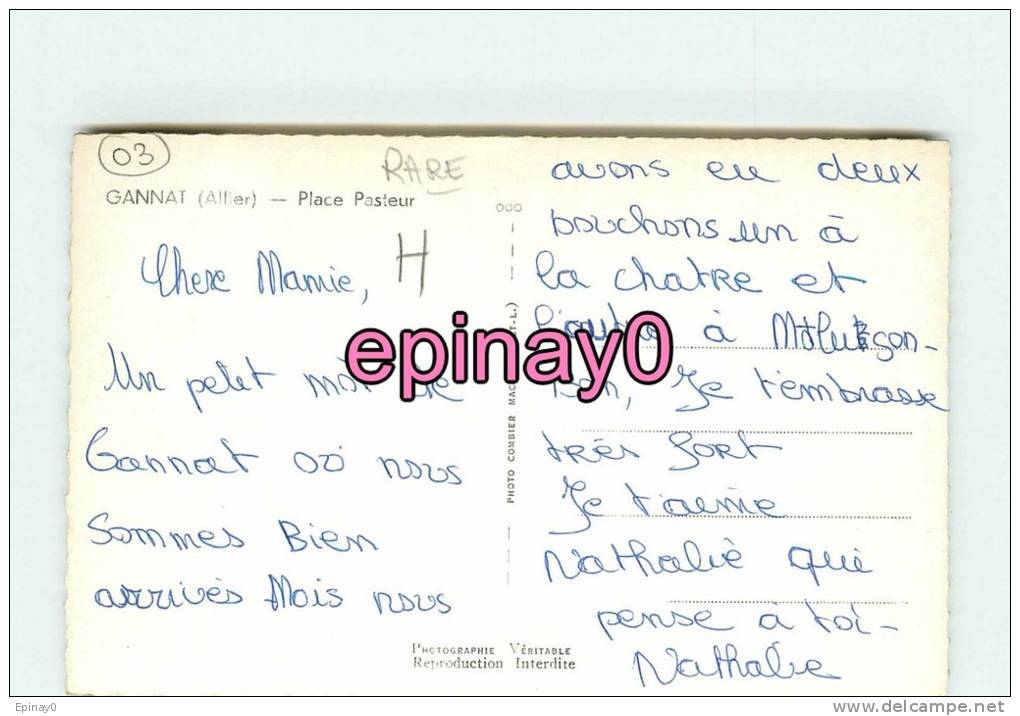 03
RARE
GANNAT (Allier) — Place Pasteur
H
Chere Mamie,
Un petit mot de
Gannat où nous
sommes Bien
arrivés Mais nous
avons eu deux
bouchons un à
la chatre et
l'autre à Montluçon-
Bon, Je t'embrasse
très fort
Je t'aime
Nathalie qui
pense à toi-
Nathalie
PHOTO COMBIER
PHOTOGRAPHIE VÉRITABLE
Reproduction Interdite
epinay0
Epinay0
www.delcampe.net